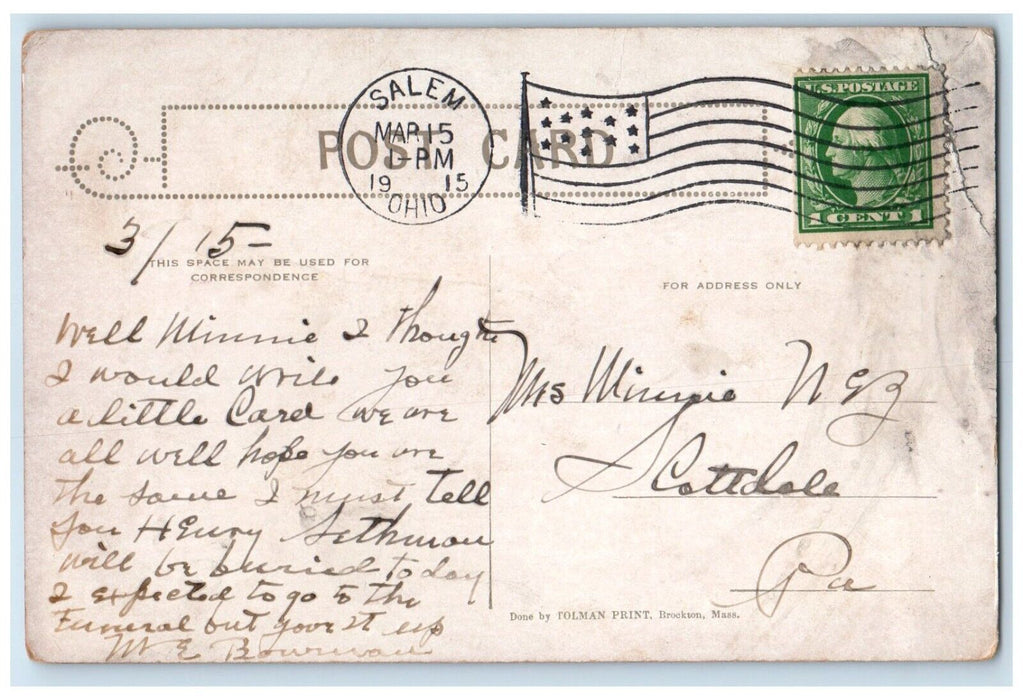 SALEM
MAR 15
1-PM
19 15
OHIO
U.S. POSTAGE
1 CENT 1
POST CARD
3/15-
THIS SPACE MAY BE USED FOR
CORRESPONDENCE
FOR ADDRESS ONLY
Well Minnie I thought
I would write you
a little Card we are
all well hope you are
the same I must tell
you Henry Sethman
will be buried today
I expected to go to the
Funeral but gave it up
M E Bowman
Mrs Minnie
Scottdale
Pa
Done by TOLMAN PRINT, Brockton, Mass.